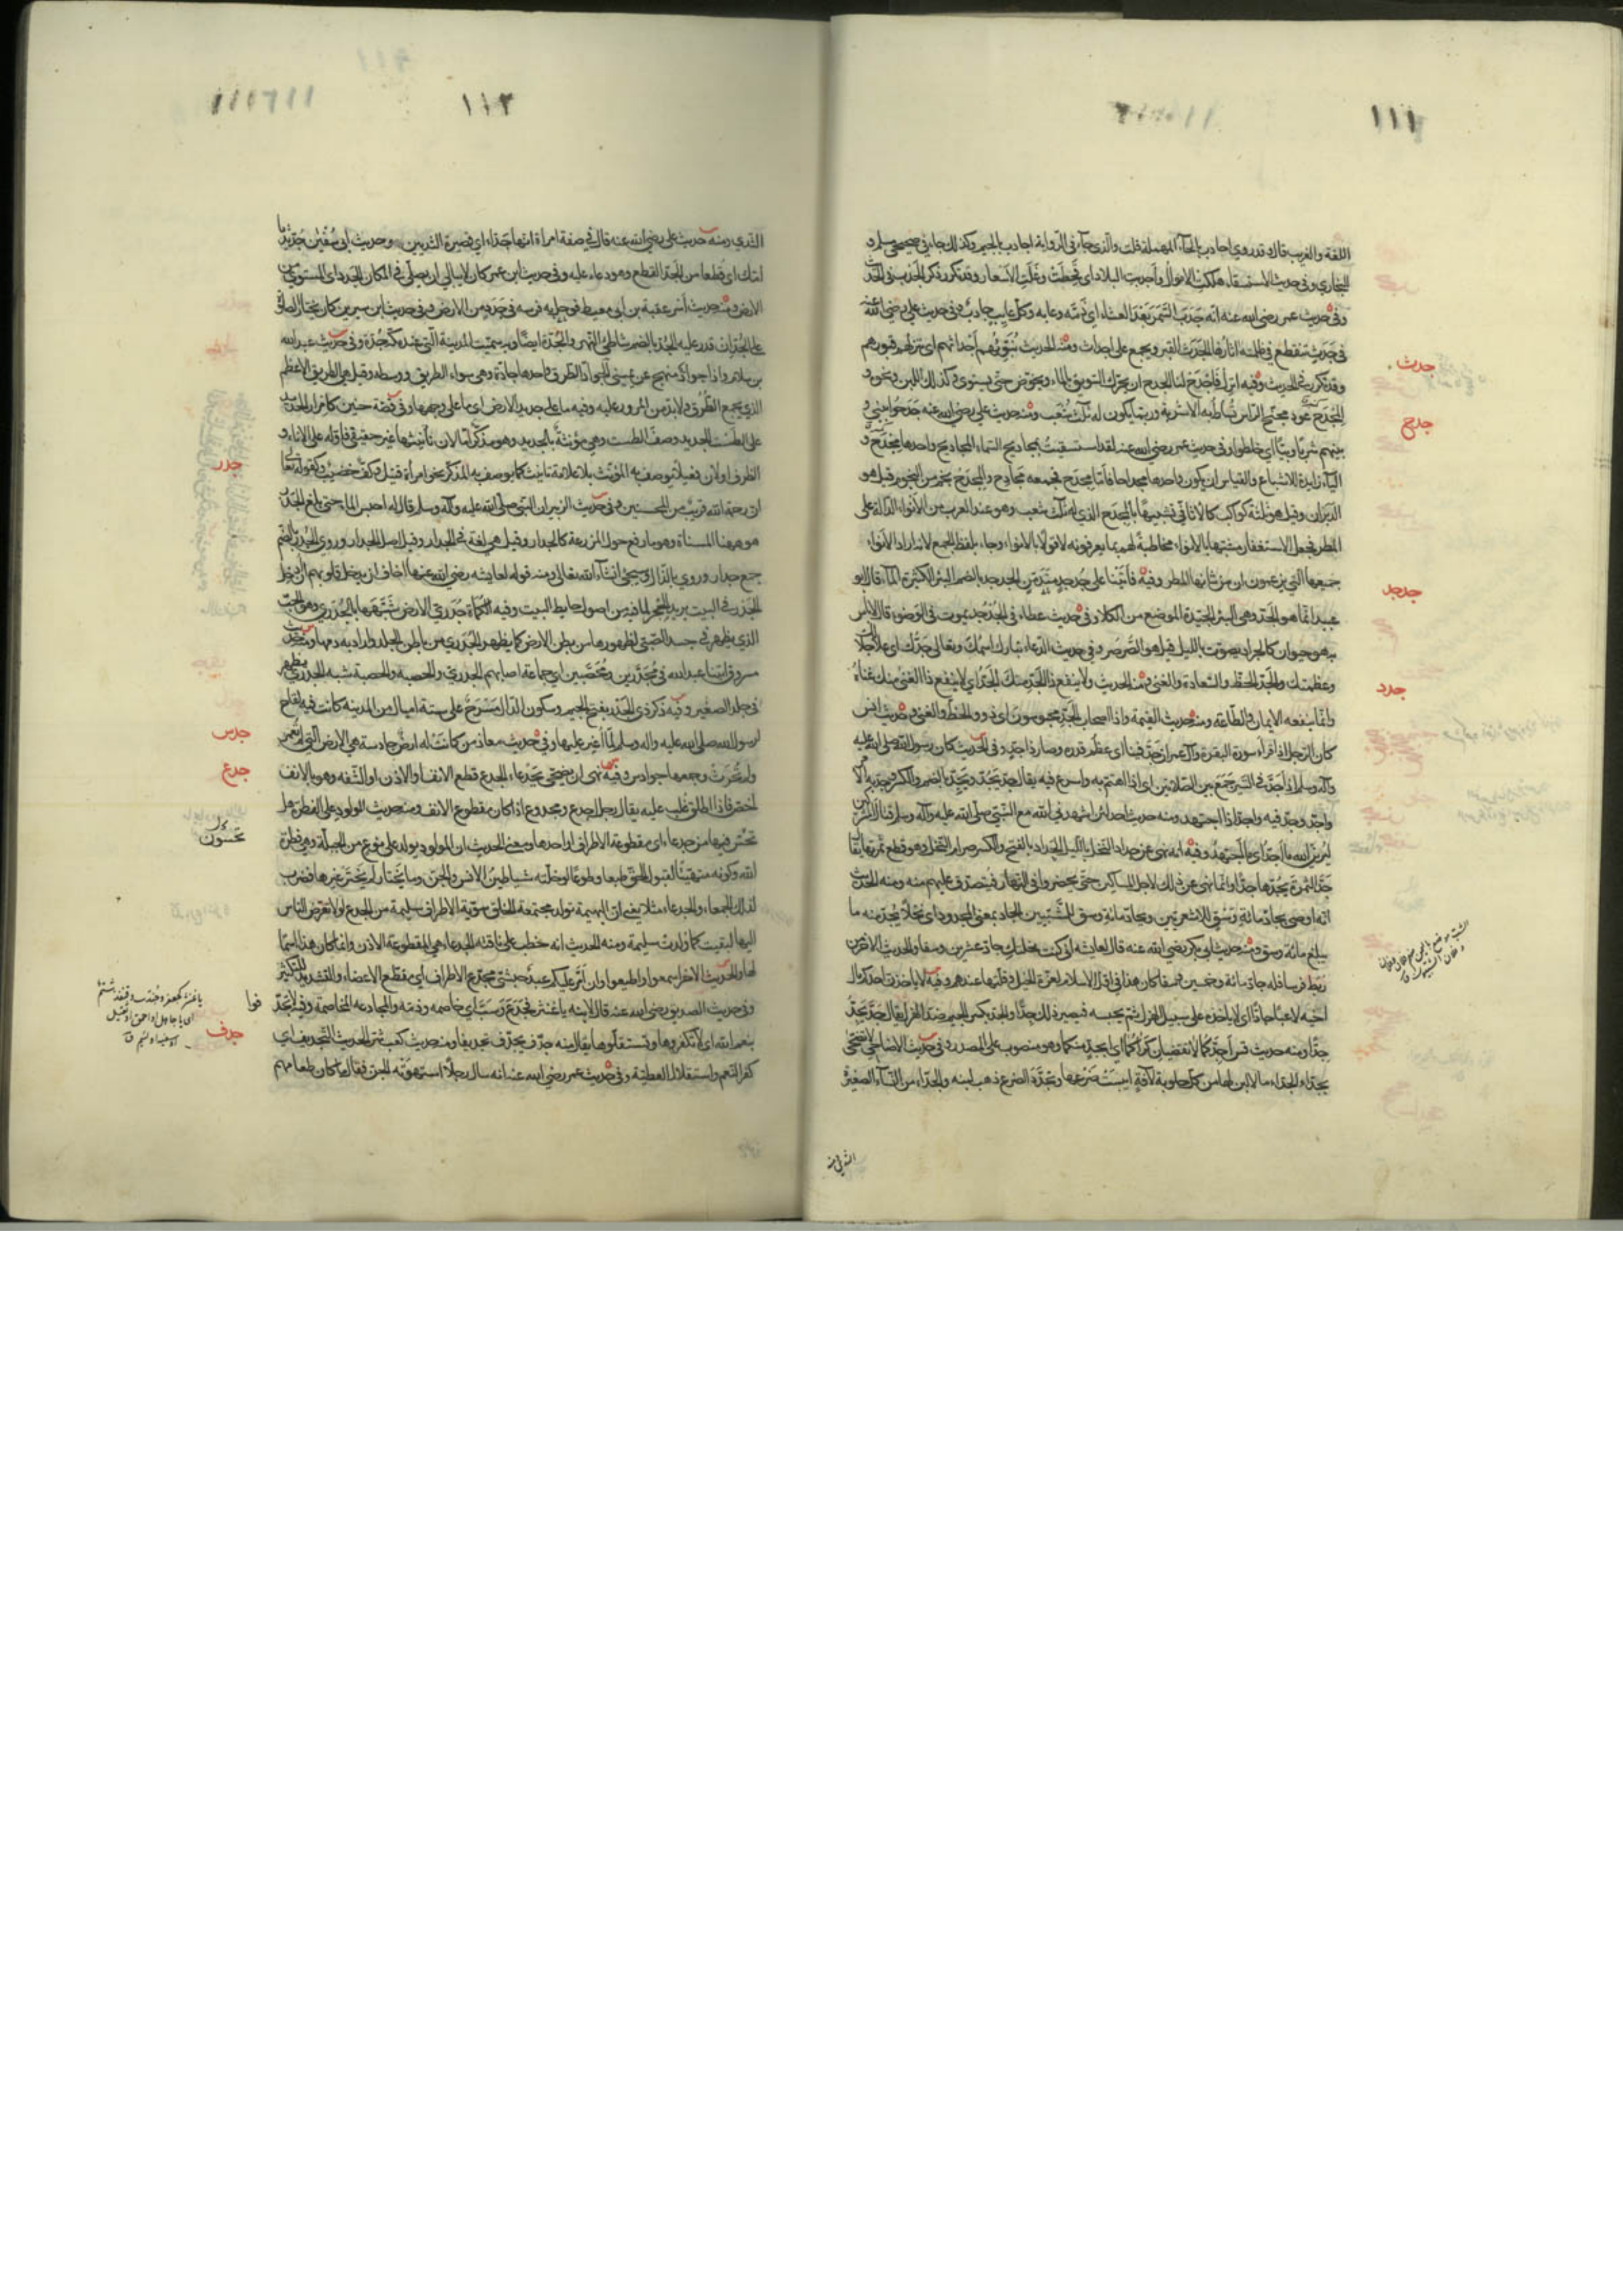 ١١١
اللغة والغريب قال وقد روي احادب بالحآء المهملة قلت والذي جآء في الرواية اجادب بالجيم وكذلك جاء في صحيحي مسلم و
البخاري وفي حديث الاستسقاء هلكت الاموال وأجدبت البلاد اى قحطت وغلت الاسعار وقد تكرر ذكر الجدب في الحديث
وفي حديث عمر رضى الله عنه انّه جَدَبَ السَّمَرَ بَعْدَ العشاء اي ذمّه وعابه وكلّ عايب جادبٌ وفي حديث علي رضي الله عنه
في جَدَثٍ ينقطع في ظلمته اثارها الجدث القبر ويجمع على اجداث ومنه الحديث نُبَوِّئُهم أجداثهم اى ننزلهم قبورهم
جدث
وقد تكرر في الحديث وفيه انزل فَاجْدَح لنا الجدح ان يحرّك السويق بالماء ويخوّض حتى يستوي وكذلك اللبن ونحوه و
المِجْدَح عود مجنّح الراس تساط به الاشربة وربّما يكون له ثلث شعب ومنه حديث علي رضى الله عنه جدحوا بيني و
جدح
بينهم شرباً وبيئا اي خلطوا وفي حديث عمر رضى الله عنه لقد استسقيت بمجاديح السماء المجاديح واحدها مِجْدَح و
الياء زايدة للاشباع والقياس ان يكون واحدها مجداحا فأمّا مجدح فجمعه مجادح والمجدح نجم من النجوم قيل هو
الدبران وقيل هو ثلثة كواكب كالاثافي تشبيهًا بالمجدح الذي له ثلث شعب وهو عند العرب من الأنواء الدالة على
المطر فجعل الاستغفار مشبّها بالانواء مخاطبةً لهم بما يعرفونه لا قولا بالانواء وجاء بلفظ الجمع لانه اراد الانواء
جميعها التي يزعمون ان من شانها المطر وفيه فأتينا على جُدجد متدمّن الجدجد بالضم البئر الكثيرة المآء قال ابو
جدجد
عبيد انّما هو الجُدّ وهى البئر الجيدة الموضع من الكلأ وفي حديث عطاء في الجُدجد يموت في الوضوء قال لا باس
به هو حيوان كالجراد يصوّت بالليل قيل هو الصَّرصَر وفي حديث الدعاء تبارك اسمك وتعالى جَدّك اي علا جلالك
وعظمتك والجَدّ الحظّ والسّعادة والغنى ومنه الحديث ولا ينفع ذا الجَدّ منك الجَدّ اي لا ينفع ذا الغنى منك غناهُ
جدد
وانّما ينفعه الايمان والطّاعة ومنه حديث القيمة واذا اصحاب الجَدّ محبوسون اى ذوو الحظ والغنى وحديث انس
كان الرّجل اذا قراء سورة البقرة وآل عمران جَدّ فينا اى عظم قدره وصار ذا جدّ وفي الحديث كان رسول الله صلى الله عليه
وآله وسلم اذا جَدّ في السّير جمع بين الصّلاتين اى اذا اهتمّ به واسرع فيه يقال جَدّ يَجُدّ ويَجِدّ بالضم والكسر وجدّ به الامر
واجدّ وجدّ فيه واجدّ اذا اجتهد ومنه حديث احد لئن اشهدني الله مع النّبيّ صلّى الله عليه وآله وسلم قتال المشركين
ليرينّ الله ما أجِدّ اى ما أجتهدُ وفيه انه نهى عن جداد النخل بالليل الجداد بالفتح والكسر صرام النخل وهو قطع ثمرتها يقال
جَدّ الثمرة يَجُدّها جدًّا وانّما نهى عن ذلك لاجل المساكين حتى يحضروا في النهار فيتصدق عليهم منه ومنه الحديث
انه اوصى بجادّ مائة وَسْقٍ للاشعريّين وبجادّ مائة وسق للشَّيْبِيّين الجاد بمعنى المجدود اى نخلا يُجدّ منه ما
يبلغ مائة وسق ومنه حديث ابي بكر رضى الله عنه قال لعائشة اني كنت نحلتك جادّ عشرين وسقا والحديث الاخر من
ربط فرسا فله جادّ مائة وخمسين وسقا كان هذا في اوّل الاسلام لعزّة الخيل وقلّتها عندهم وفيه لا ياخذنّ احدكم مال
اخيه لاعبًا جادًّا اى لا ياخذه على سبيل الهزل ثم يحبسه فيصير ذلك جِدًّا والجدّ بكسر الجيم ضد الهزل يقال جَدّ يَجِدّ
جِدًّا ومنه حديث قس أجِدّكما لا تقضيان كراكما اى ابجدٍّ منكما وهو منصوب على المصدر وفي حديث الاضاحي لا يضحّى
بجدّاء الجدّاء ما لا لبن لها من كل حلوبة لآفةٍ ايبست ضَرعها وتجدّد الضرع ذهب لبنه والجدّاء من النسآء الصغيرة
الثدي ومنه
١١٢
الثدي ومنه حديث علي رضي الله عنه قال في صفة امراة انّها جدّاء اي قصيرة الثديين وحديث ابي سُفيٰن جُدّ ثديا
امّك اى قُطعا من الجدّ القطع وهو دعاء عليه وفي حديث ابن عمر كان لا يبالي ان يصلّي في المكان الجَدَد اى المستوي من
الارض ومنه حديث أسر عقبة بن ابي معيط فوحل به فرسه في جَدَدٍ من الارض وفي حديث ابن سيرين كان يختار الصلوة
على الجُدّ ان قدر عليه الجُدّ بالضم شاطئ النهر والجُدّة ايضًا وبه سميت المدينة الّتي عند مكة جُدّة وفي حديث عبد الله
بن سلام واذا جوادّ منهج عن يميني الجوادّ الطرق واحدها جادّة وهى سواء الطريق ووسطه وقيل هى الطريق الاعظم
الذي يجمع الطُرُق ولا بدّ من المرور عليه وفيه ما على جديد الارض اى ما على وجهها وفي قصّة حنين كامرار الحديد
على الطست الجديد وصف الطست وهي مؤنثة بالجديد وهو مذكّر امّا لان تأنيثها غير حقيقى فاوّله على الاناء و
الظرف او لان فعيلا يوصف به المؤنث بلا علامة تانيث كما يوصف به المذكر نحو امراة قتيل وكف خضيب وكقوله تعالى
جدر
ان رحمة الله قريب من المحسنين وفي حديث الزبير ان النبي صلّى الله عليه وآله وسلم قال له احبس الماء حتى يبلغ الجَدْر
هو ههنا المسنّاة وهو ما رفع حول المزرعة كالجدار وقيل هى لغة في الجدار وقيل اصل الجدار وروي الجُدُر بالضم
جمع جدار وروي بالذال وسيجيء انشآء الله تعالى ومنه قوله لعايشه رضي الله عنها اخاف ان يدخل قلوبهم ان ادخل
الجَدْر في البيت يريد الحِجر لما فيه من اصول حايط البيت وفيه الكمأة جُدَريّ الارض شبّهها بالجُدَريّ وهو الحَبّ
الذي يظهر في جسد الصّبيّ لظهورها من بطن الارض كما يظهر الجُدَري من باطن الجلد واراد به ذمها ومنه حديث
مسروق اتينا عبد الله في مُجَدَّرين ومُحَصَّبين اى جماعة اصابهم الجدري والحصبة والحصبة شبه الجدري يظهر
في جلد الصغير وفيه ذكر ذي الجَدْر بفتح الجيم وسكون الدّال مَسْرَح على ستة اميال من المدينة كانت فيه لقاح
لرسول الله صلى الله عليه واله وسلم لمّا اُغير عليها وفي حديث معاذ من كانت له ارضٌ جادسة هي الارض التي لم تُعمر
جدس
ولم تُحرَث وجمعها جوادس وفيه نهى ان يضحى بجَدْعاء الجدع قطع الانف والاذن او الشّفه وهو بالانف
جدع
اخصّ فاذا اطلق غلب عليه يقال رجل اجدع ومجدوع اذا كان مقطوع الانف ومنه حديث المولود على الفطرة هل
تحسّون فيها من جدعاء اى مقطوعة الاطراف او احدها ومعنى الحديث ان المولود يولد على نوع من الجبلّة وهي فطرة
تحسون
الله وكونه متهيّئًا لقبول الحق طبعا وطوعًا لو خلّته شياطين الانس والجن وما يختار لم يختر غيرها فضرب
لذلك الجمعاء والجدعاء مثلا يعني انّ البهيمة تولد مجتمعة الخلق سويّة الاطراف سليمة من الجدع لولا تعرّض الناس
اليها لبقيت كما وُلدت سليمة ومنه الحديث انه خطب على ناقته الجدعاء هي المقطوعة الاذن وقيل كان هذا اسمًا
لها والحديث الاخر اسمعوا واطيعوا وان أُمّر عليكم عبدٌ حبشيّ مجدّع الاطراف اي مقطّع الاعضاء والتشديد للتكثير
وفي حديث الصديق رضى الله عنه قال لابنه يا غنثر فجدّع وسبّ اي خاصمه وذمّه والمجادعة المخاصمة وفيه لا تجدّفوا
يا غنثر كجعفر وجندب وقنفذ شتم
اى يا جاهل او احمق او ثقيل
جدف
بنعم الله اى لا تكفروها وتستقلّوها يقال منه جدّف يجدّف تجديفا ومنه حديث كعب شرّ الحديث التّجديف اى
كفر النعم واستقلال العطيّة وفي حديث عمر رضي الله عنه انه سأل رجلًا استهوته الجن فقال ما كان طعامهم